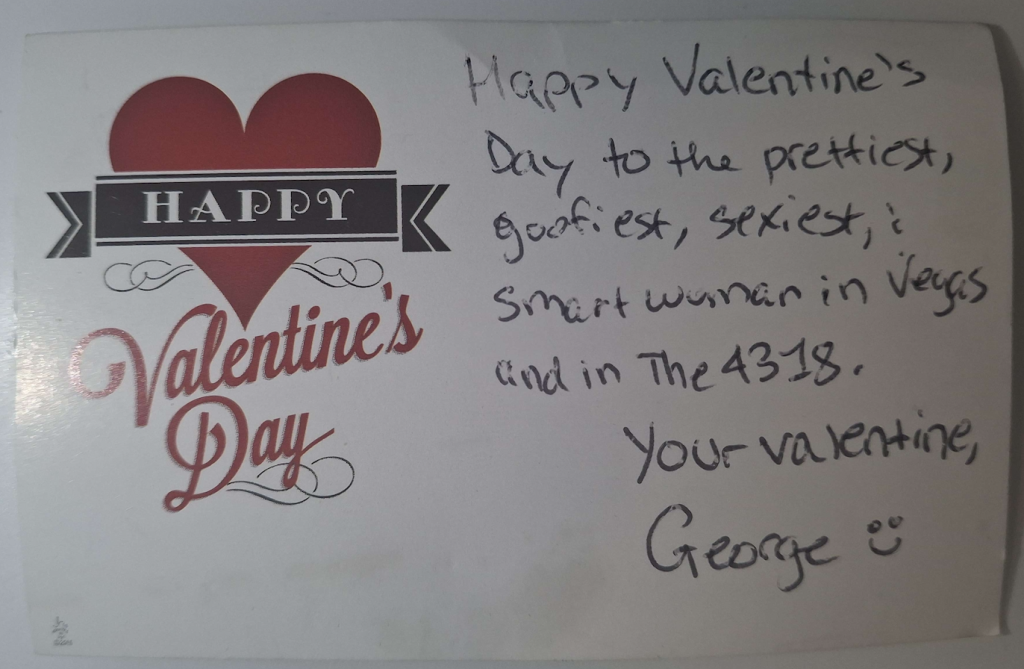 HAPPY
Valentine's
Day
Happy Valentine's
Day to the prettiest,
goofiest, sexiest, &
smart woman in Vegas
and in The 4318.
Your valentine,
George :)